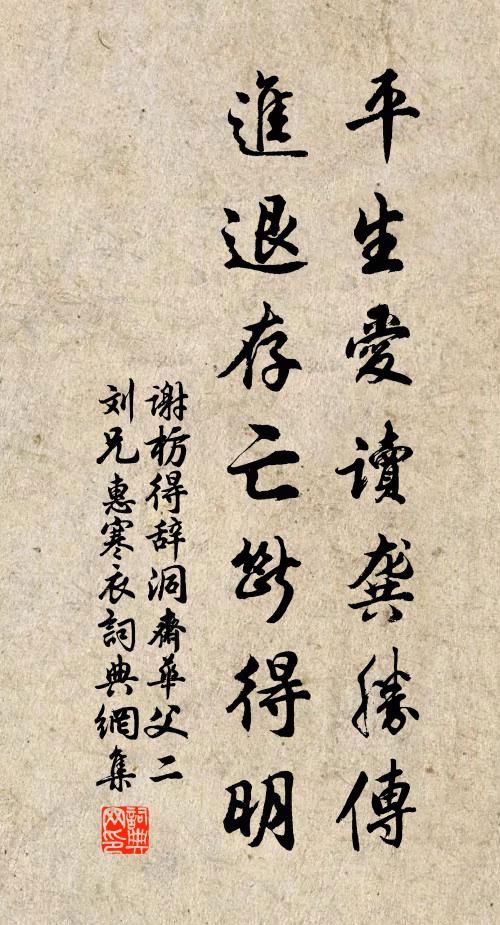 平生愛讀龔勝傳
進退存亡斷得明
谢枋得辞洞齋華父二
刘兄惠寒衣詞典網集
詞典網印